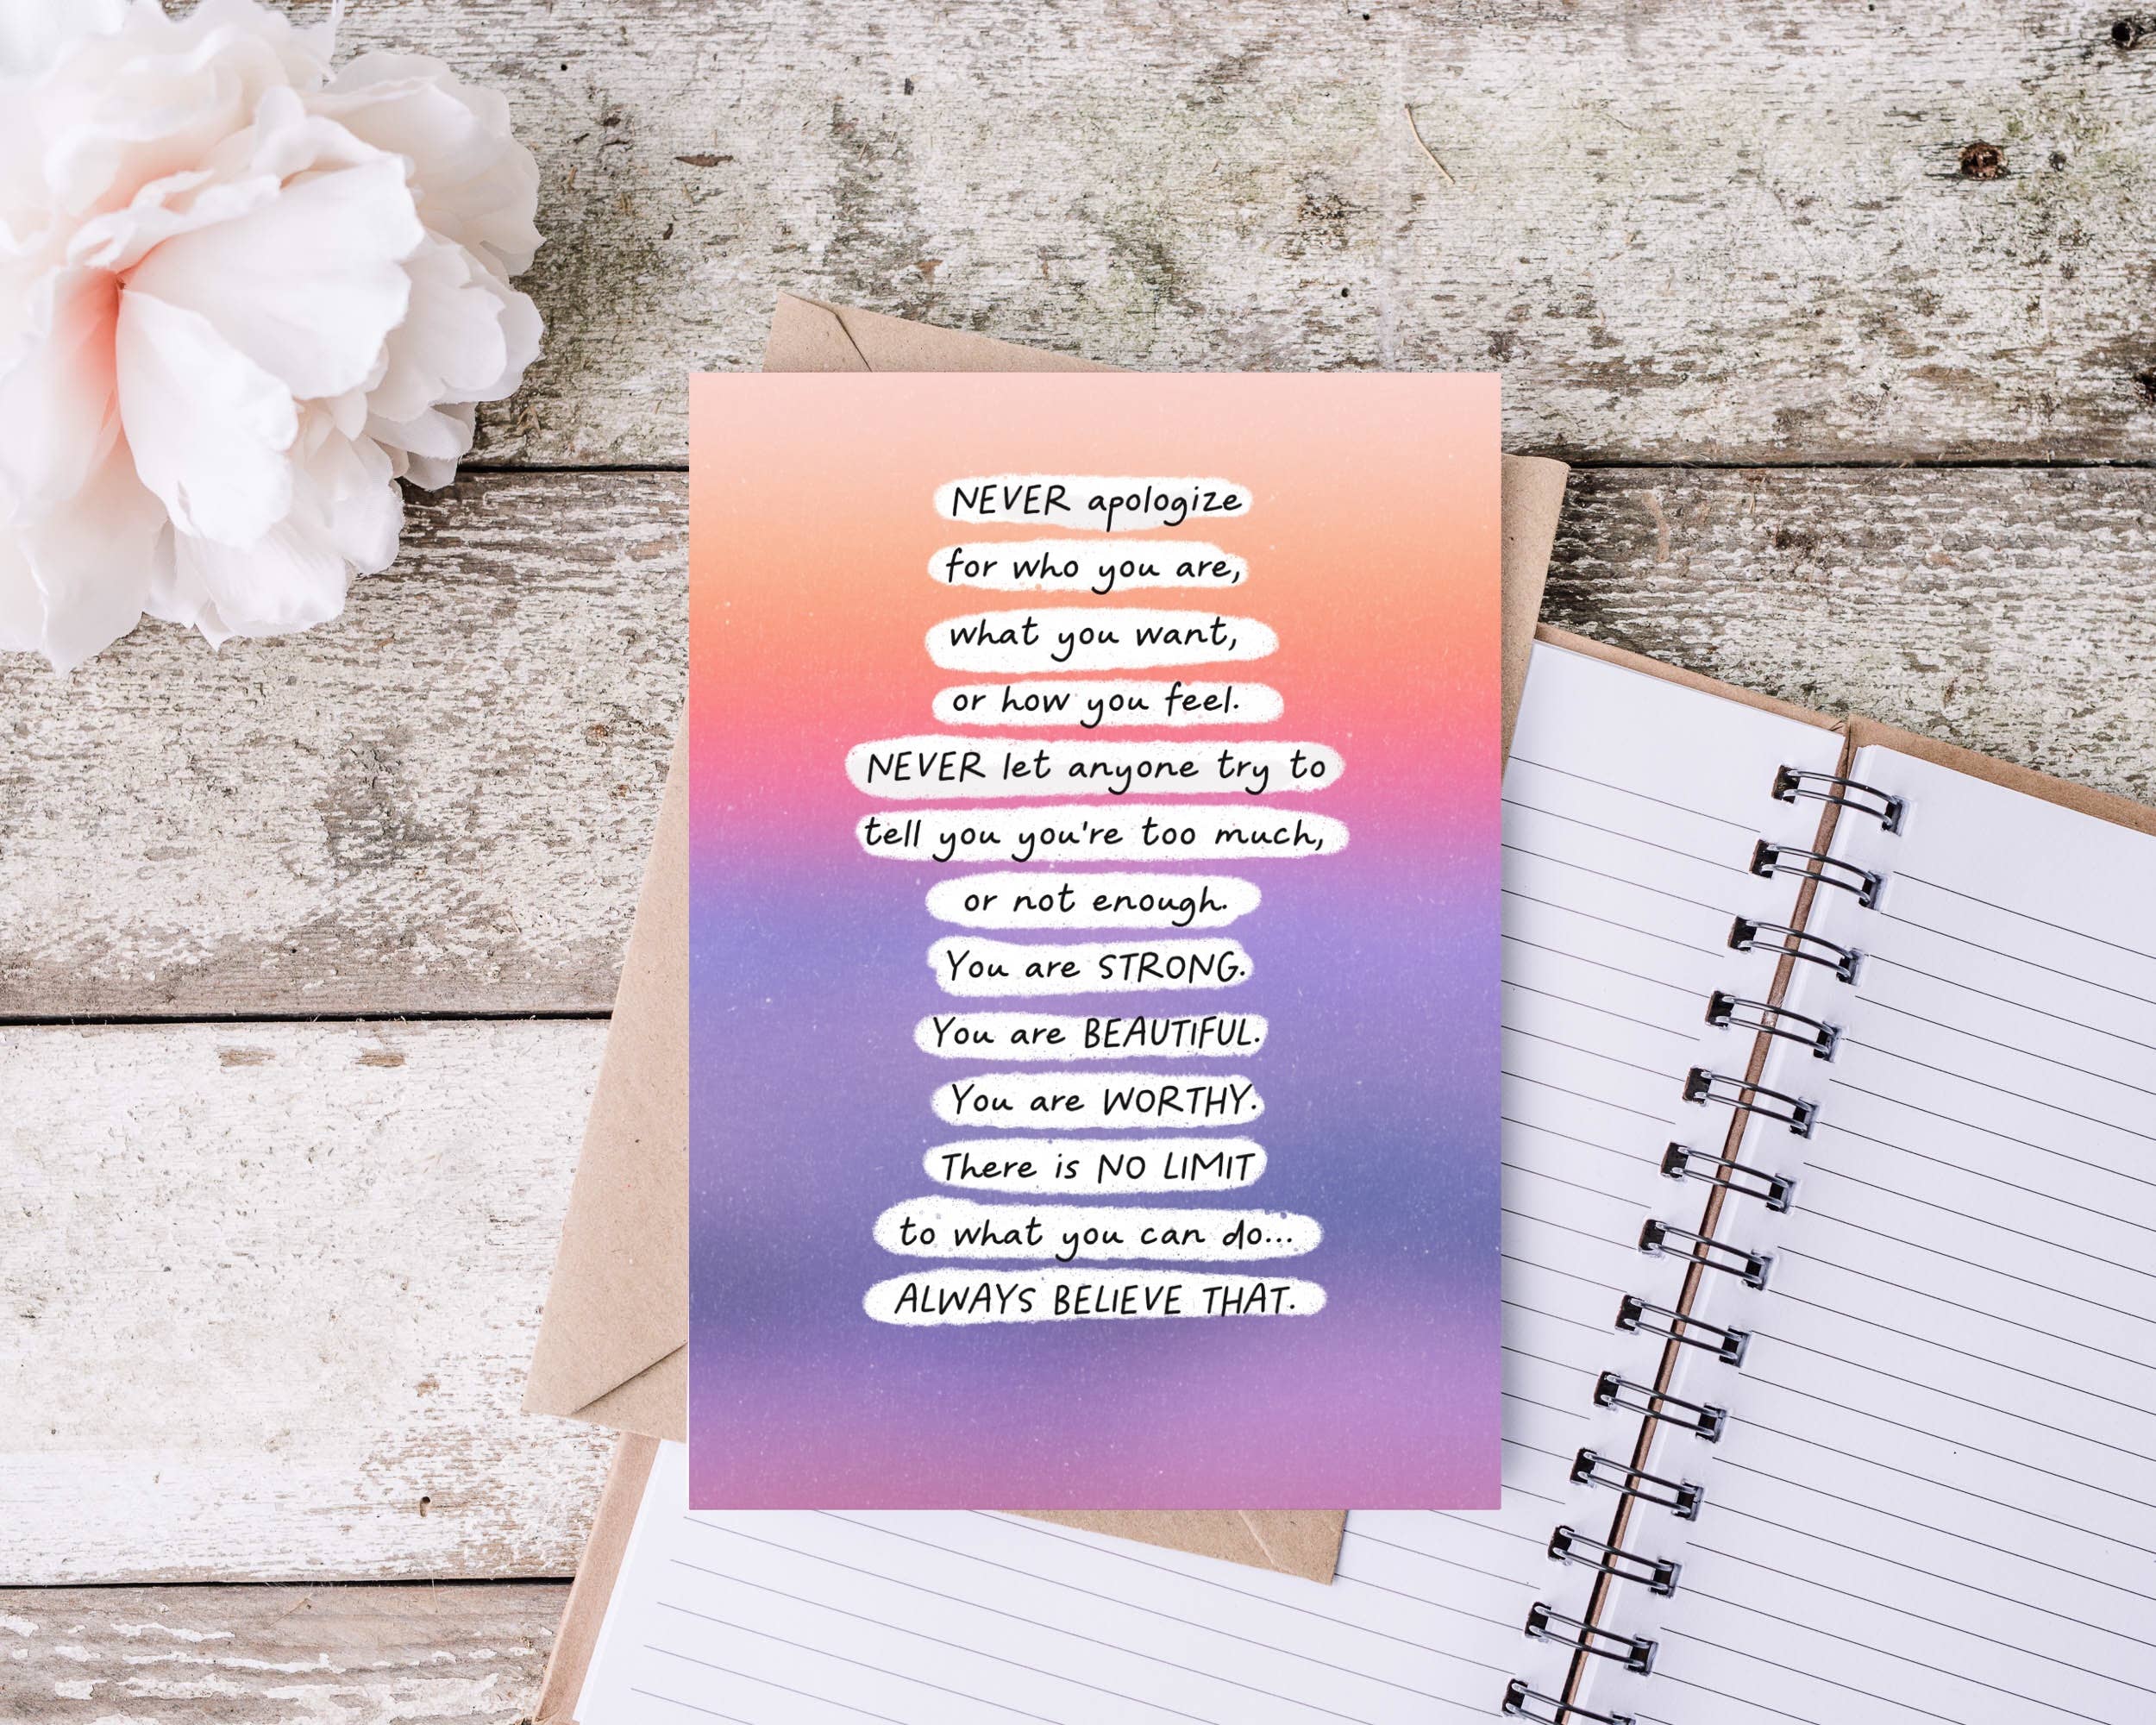 NEVER apologize
for who you are,
what you want,
or how you feel.
NEVER let anyone try to
tell you you're too much,
or not enough.
You are STRONG.
You are BEAUTIFUL.
You are WORTHY.
There is NO LIMIT
to what you can do...
ALWAYS BELIEVE THAT.